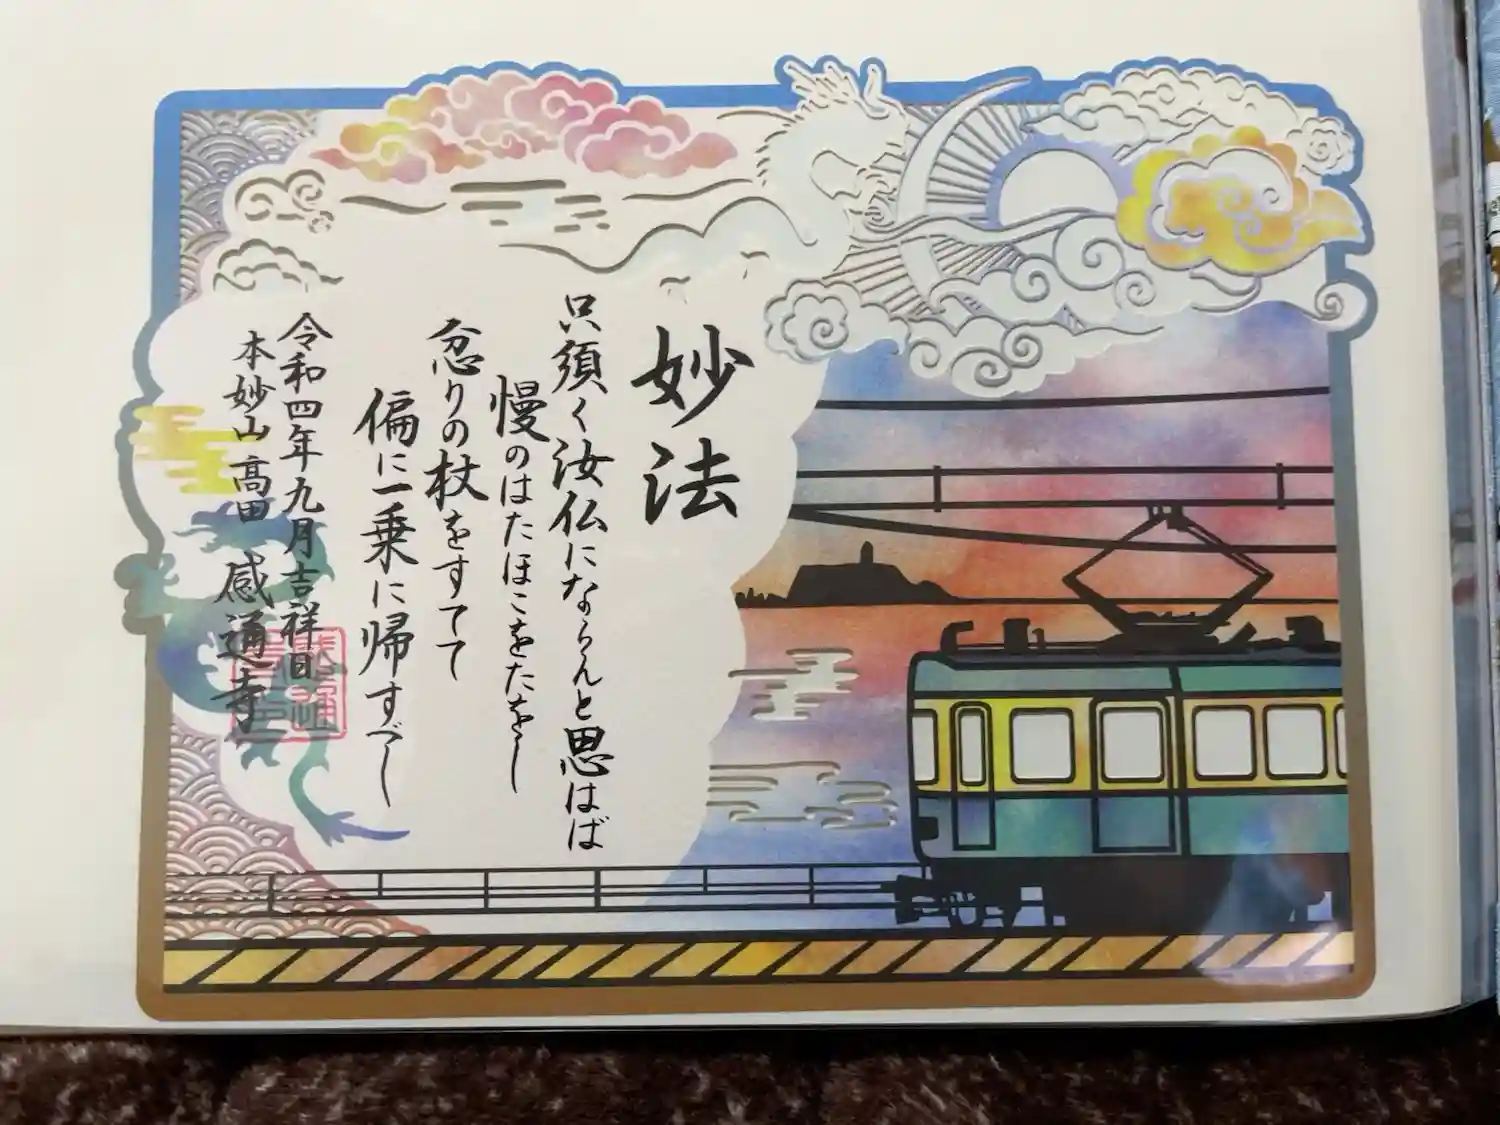 妙法
只須く汝仏にならんと思はば
慢のはたほこをたをし
忿りの杖をすてて
偏に一乗に帰すべし
令和四年九月吉祥日
本妙山高田感通寺